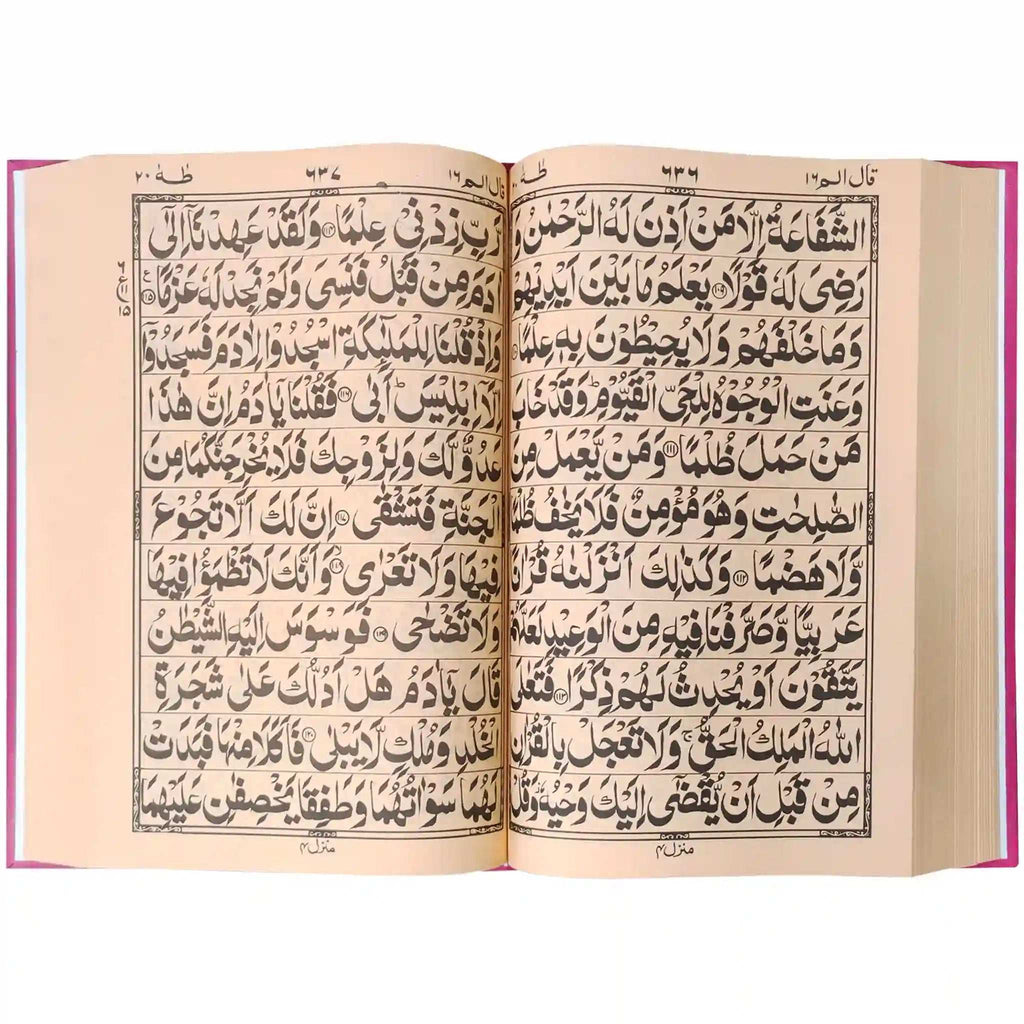 قَالَ اَلَم ١٦ ٦٣٦ طٰهٰ
الشَّفَاعَةُ اِلَّا مَنْ اَذِنَ لَهُ الرَّحْمٰنُ وَ
رَضِیَ لَهٗ قَوْلًا ﴿۱۰۹﴾ یَعْلَمُ مَا بَیْنَ اَیْدِیْهِمْ
وَمَا خَلْفَهُمْ وَلَا یُحِیْطُوْنَ بِهٖ عِلْمًا
وَعَنَتِ الْوُجُوْهُ لِلْحَیِّ الْقَیُّوْمِ ؕ وَقَدْ خَابَ
مَنْ حَمَلَ ظُلْمًا ﴿۱۱۱﴾ وَمَنْ یَّعْمَلْ مِنَ
الصّٰلِحٰتِ وَهُوَ مُؤْمِنٌ فَلَا یَخٰفُ ظُلْمًا
وَّلَا هَضْمًا ﴿۱۱۲﴾ وَكَذٰلِكَ اَنْزَلْنٰهُ قُرْاٰنًا
عَرَبِیًّا وَّصَرَّفْنَا فِیْهِ مِنَ الْوَعِیْدِ لَعَلَّهُمْ
یَتَّقُوْنَ اَوْ یُحْدِثُ لَهُمْ ذِكْرًا ﴿۱۱۳﴾ فَتَعٰلَی
اللّٰهُ الْمَلِكُ الْحَقُّ ۚ وَلَا تَعْجَلْ بِالْقُرْاٰنِ
مِنْ قَبْلِ اَنْ یُّقْضٰۤی اِلَیْكَ وَحْیُهٗ ؗ وَقُلْ
منزل ۴
قال الم ١٦ ٦٣٧ طٰهٰ ٢٠
رَّبِّ زِدْنِیْ عِلْمًا ﴿۱۱۴﴾ وَلَقَدْ عَهِدْنَاۤ اِلٰۤی
اٰدَمَ مِنْ قَبْلُ فَنَسِیَ وَلَمْ نَجِدْ لَهٗ عَزْمًا ﴿۱۱۵﴾ ع
٦ ع ١١ ١٥
وَاِذْ قُلْنَا لِلْمَلٰٓئِكَةِ اسْجُدُوْا لِاٰدَمَ فَسَجَدُوْۤا
اِلَّاۤ اِبْلِیْسَ ؕ اَبٰی ﴿۱۱۶﴾ فَقُلْنَا یٰۤاٰدَمُ اِنَّ هٰذَا
عَدُوٌّ لَّكَ وَلِزَوْجِكَ فَلَا یُخْرِجَنَّكُمَا مِنَ
الْجَنَّةِ فَتَشْقٰی ﴿۱۱۷﴾ اِنَّ لَكَ اَلَّا تَجُوْعَ
فِیْهَا وَلَا تَعْرٰی ﴿۱۱۸﴾ وَاَنَّكَ لَا تَظْمَؤُا فِیْهَا
وَلَا تَضْحٰی ﴿۱۱۹﴾ فَوَسْوَسَ اِلَیْهِ الشَّیْطٰنُ
قَالَ یٰۤاٰدَمُ هَلْ اَدُلُّكَ عَلٰی شَجَرَةِ
الْخُلْدِ وَمُلْكٍ لَّا یَبْلٰی ﴿۱۲۰﴾ فَاَكَلَا مِنْهَا فَبَدَتْ
لَهُمَا سَوْاٰتُهُمَا وَطَفِقَا یَخْصِفٰنِ عَلَیْهِمَا
منزل ۴